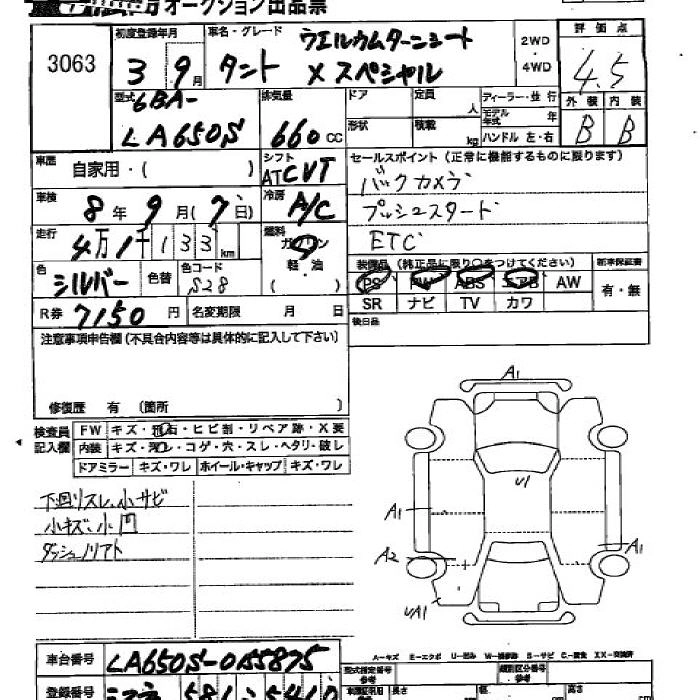 オークション出品票
3063
初度登録年月 3年 9月
車名・グレード ウエルカムターンシート
タント Xスペシャル
2WD・4WD
評価点 4.5
外装 B 内装 B
型式 6BA-
LA650S
排気量 660 CC
ドア 定員 人
形状 積載 kg
ディーラー・並行
モデル年式 年
ハンドル 左・右
車歴 自家用・( )
シフト AT CVT
セールスポイント (正常に機能するものに限ります)
バックカメラ
プッシュスタート
ETC
車検 8年 9月 (7日)
冷房 A/C
走行 4万1千133km
燃料 ガソリン
軽・油
( )
色 シルバー 色替 色コード S28
装備品 (純正品に限り○をつけてください)
PS PW ABS エアB AW
SR ナビ TV カワ
新車保証書 有・無
R券 7150円 名変期限 月 日
後日品
注意事項申告欄(不具合内容等は具体的に記入して下さい)
修復歴 有 (箇所 )
検査員記入欄
FW キズ・飛石・ヒビ割・リペア跡・X要
内装 キズ・汚れ・コゲ・穴・スレ・ヘタリ・破レ
ドアミラー キズ・ワレ ホイール・キャップ キズ・ワレ
下回リスレ、小サビ
小キズ、小凹
ダッシュノリアト
A1
U1
A1
A2
A1
UA1
A-キズ E-エクボ U-凹み W-補修跡 S-サビ C-腐食 XX-交換済
車台番号 LA650S-0155875
登録番号 581 5410
型式指定番号 参考
類別区分番号 参考
長さ 幅 高さ